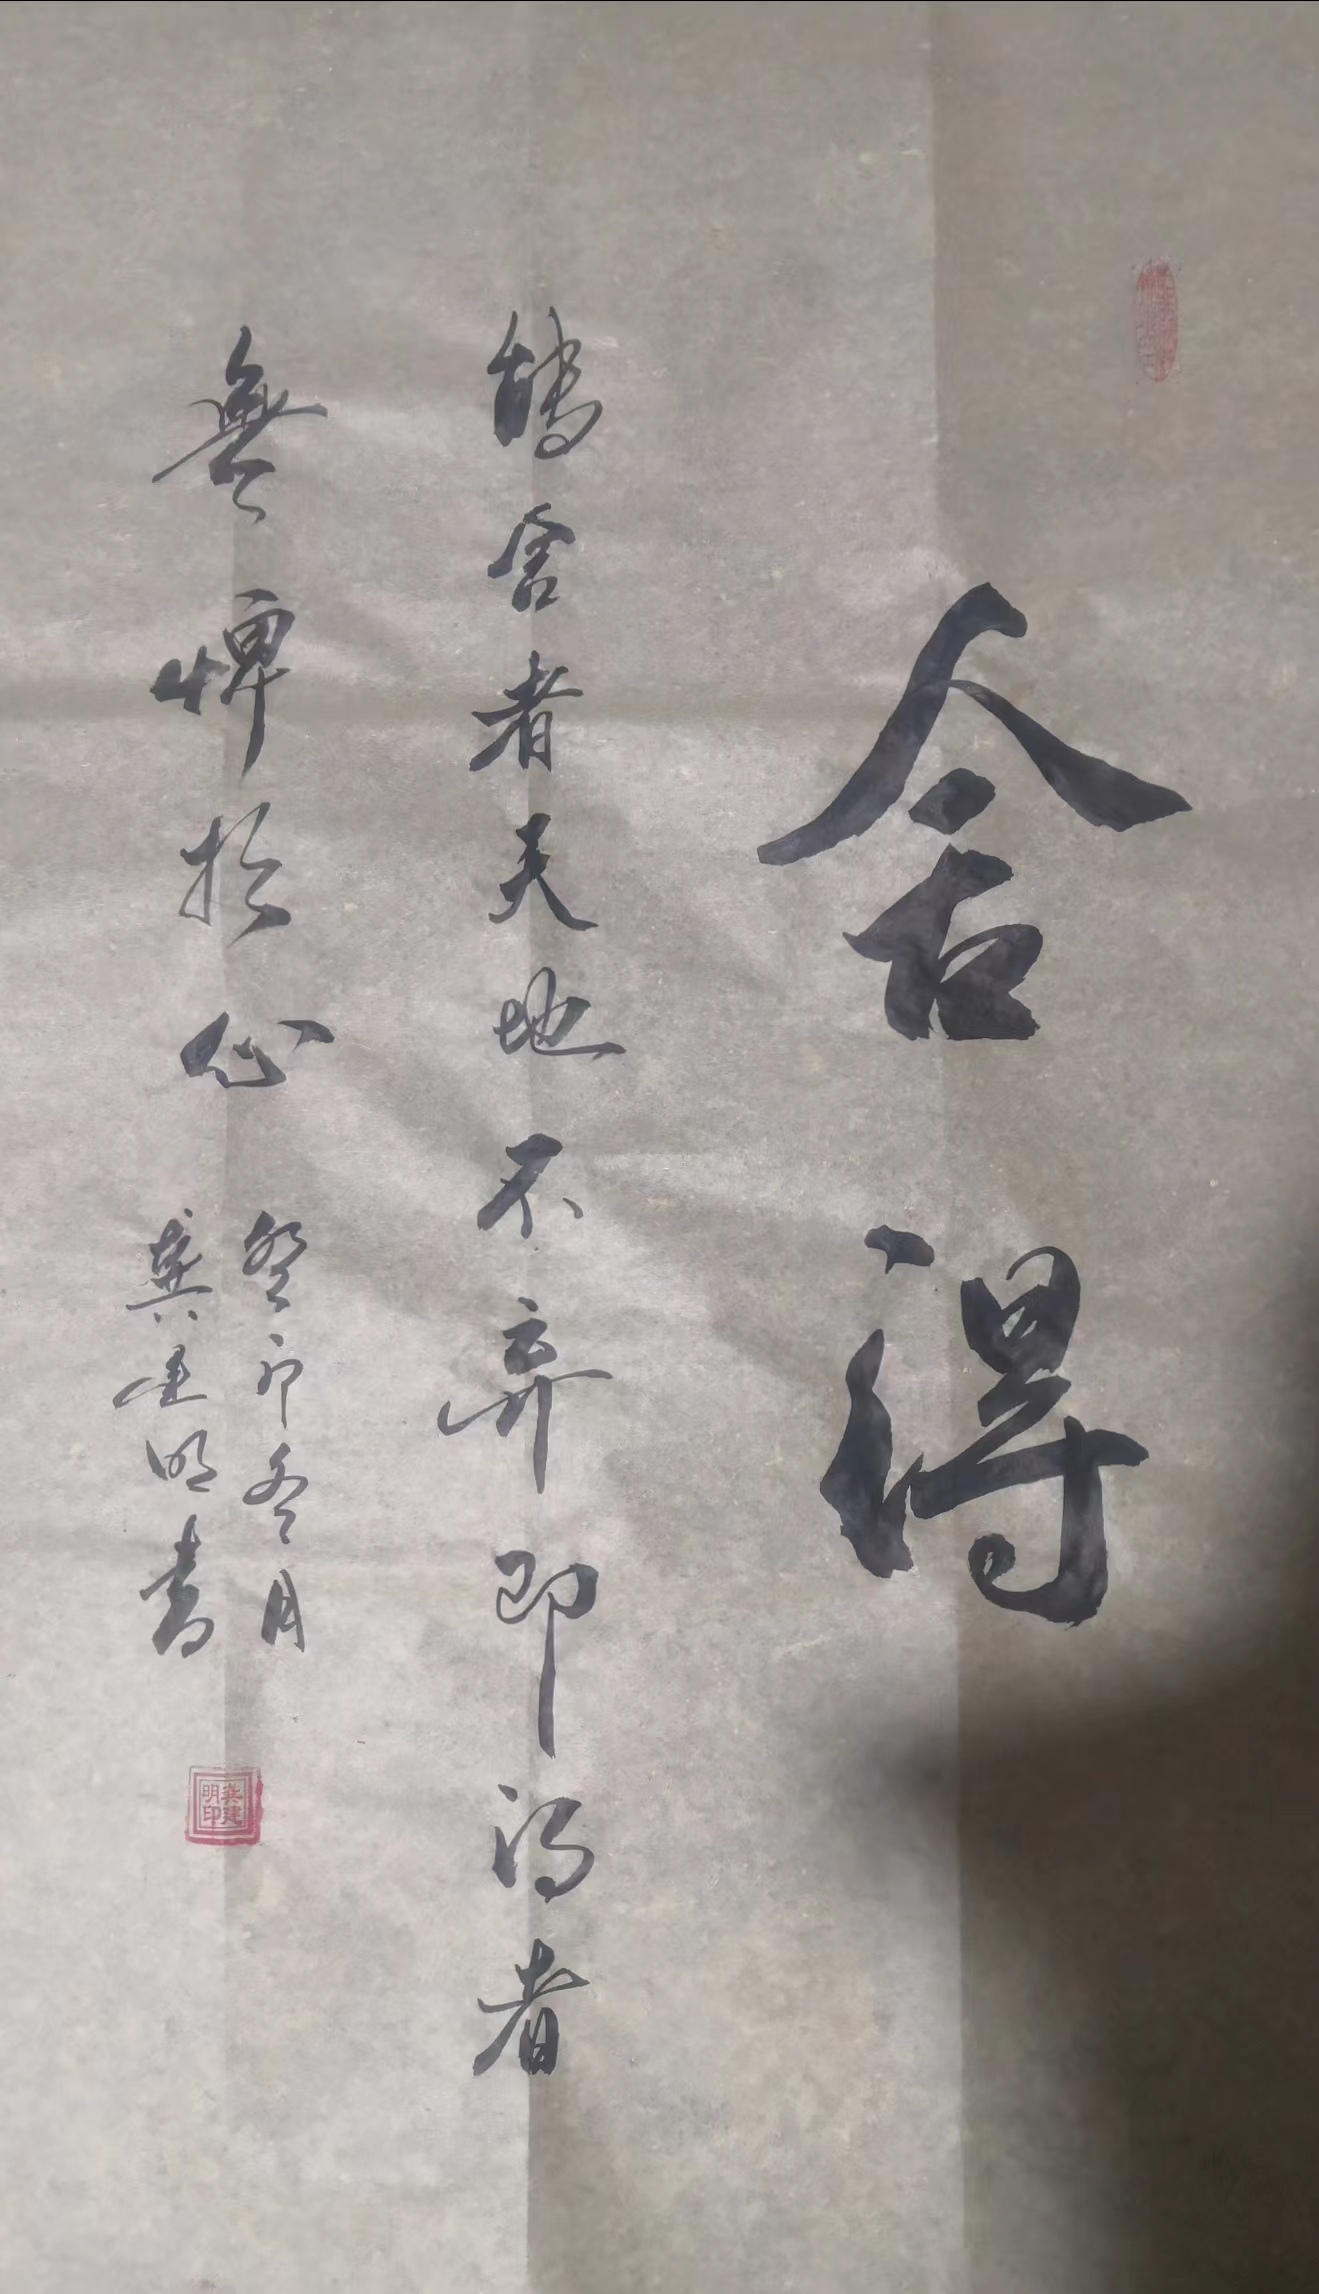 舍得
能舍者天地不弃即得者
無愧於心
癸卯冬月
龚建明書
龚建明印